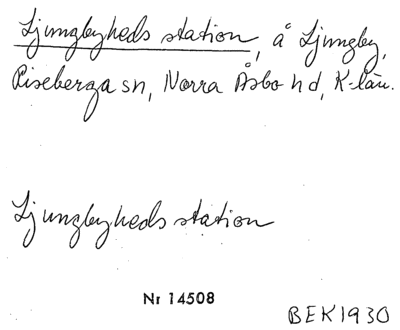 Ljungbyheds station, å Ljungby,
Riseberga sn, Norra Åsbo hd, K-län.
Ljungbyheds station
Nr 14508
BEK1930